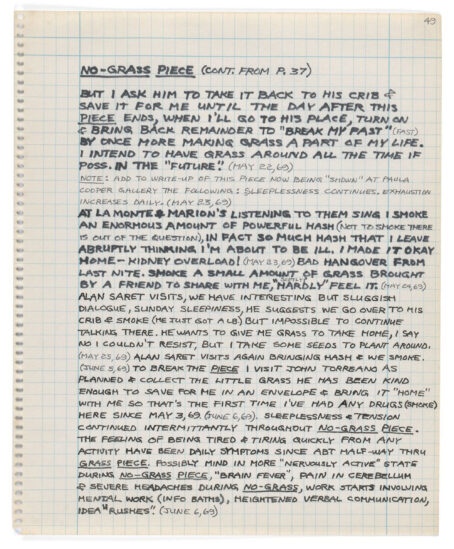 49
NO-GRASS PIECE (CONT. FROM P. 37)
BUT I ASK HIM TO TAKE IT BACK TO HIS CRIB &
SAVE IT FOR ME UNTIL THE DAY AFTER THIS
PIECE ENDS, WHEN I'LL GO TO HIS PLACE, TURN ON
& BRING BACK REMAINDER TO "BREAK MY FAST" (FAST)
BY ONCE MORE MAKING GRASS A PART OF MY LIFE.
I INTEND TO HAVE GRASS AROUND ALL THE TIME IF
POSS. IN THE "FUTURE". (MAY 22, 69)
NOTE: ADD TO WRITE-UP OF THIS PIECE NOW BEING "SHOWN" AT PAULA
COOPER GALLERY THE FOLLOWING: SLEEPLESSNESS CONTINUES. EXHAUSTION
INCREASES DAILY. (MAY 23, 69)
AT LA MONTE & MARION'S LISTENING TO THEM SING I SMOKE
AN ENORMOUS AMOUNT OF POWERFUL HASH (NOT TO SMOKE THERE
IS OUT OF THE QUESTION), IN FACT SO MUCH HASH THAT I LEAVE
ABRUPTLY THINKING I'M ABOUT TO BE ILL. I MADE IT OKAY
HOME - KIDNEY OVERLOAD! (MAY 23, 69) BAD HANGOVER FROM
LAST NITE. SMOKE A SMALL AMOUNT OF GRASS BROUGHT
BY A FRIEND TO SHARE WITH ME, "HARDLY" FEEL IT. (MAY 24, 69)
ALAN SARET VISITS, WE HAVE INTERESTING BUT SLUGGISH
DIALOGUE, SUNDAY SLEEPINESS, HE SUGGESTS WE GO OVER TO HIS
CRIB & SMOKE (HE JUST GOT A LB) BUT IMPOSSIBLE TO CONTINUE
TALKING THERE. HE WANTS TO GIVE ME GRASS TO TAKE HOME, I SAY
NO I COULDN'T RESIST, BUT I TAKE SOME SEEDS TO PLANT AROUND.
(MAY 25, 69) ALAN SARET VISITS AGAIN BRINGING HASH & WE SMOKE.
(JUNE 5, 69) TO BREAK THE PIECE I VISIT JOHN TORREANO AS
PLANNED & COLLECT THE LITTLE GRASS HE HAS BEEN KIND
ENOUGH TO SAVE FOR ME IN AN ENVELOPE & BRING IT "HOME"
WITH ME SO THAT'S THE FIRST TIME I'VE HAD ANY DRUGS (SMOKE)
HERE SINCE MAY 3, 69 (JUNE 6, 69). SLEEPLESSNESS & TENSION
CONTINUED INTERMITTANTLY THROUGHOUT NO-GRASS PIECE.
THE FEELING OF BEING TIRED & TIRING QUICKLY FROM ANY
ACTIVITY HAVE BEEN DAILY SYMPTOMS SINCE ABT HALF-WAY THRU
GRASS PIECE. POSSIBLY MIND IN MORE "NERVOUSLY ACTIVE" STATE
DURING NO-GRASS PIECE, "BRAIN FEVER", PAIN IN CEREBELLUM
& SEVERE HEADACHES DURING NO-GRASS, WORK STARTS INVOLVING
MENTAL WORK (INFO BATHS), HEIGHTENED VERBAL COMMUNICATION,
IDEA "RUSHES". (JUNE 6, 69)